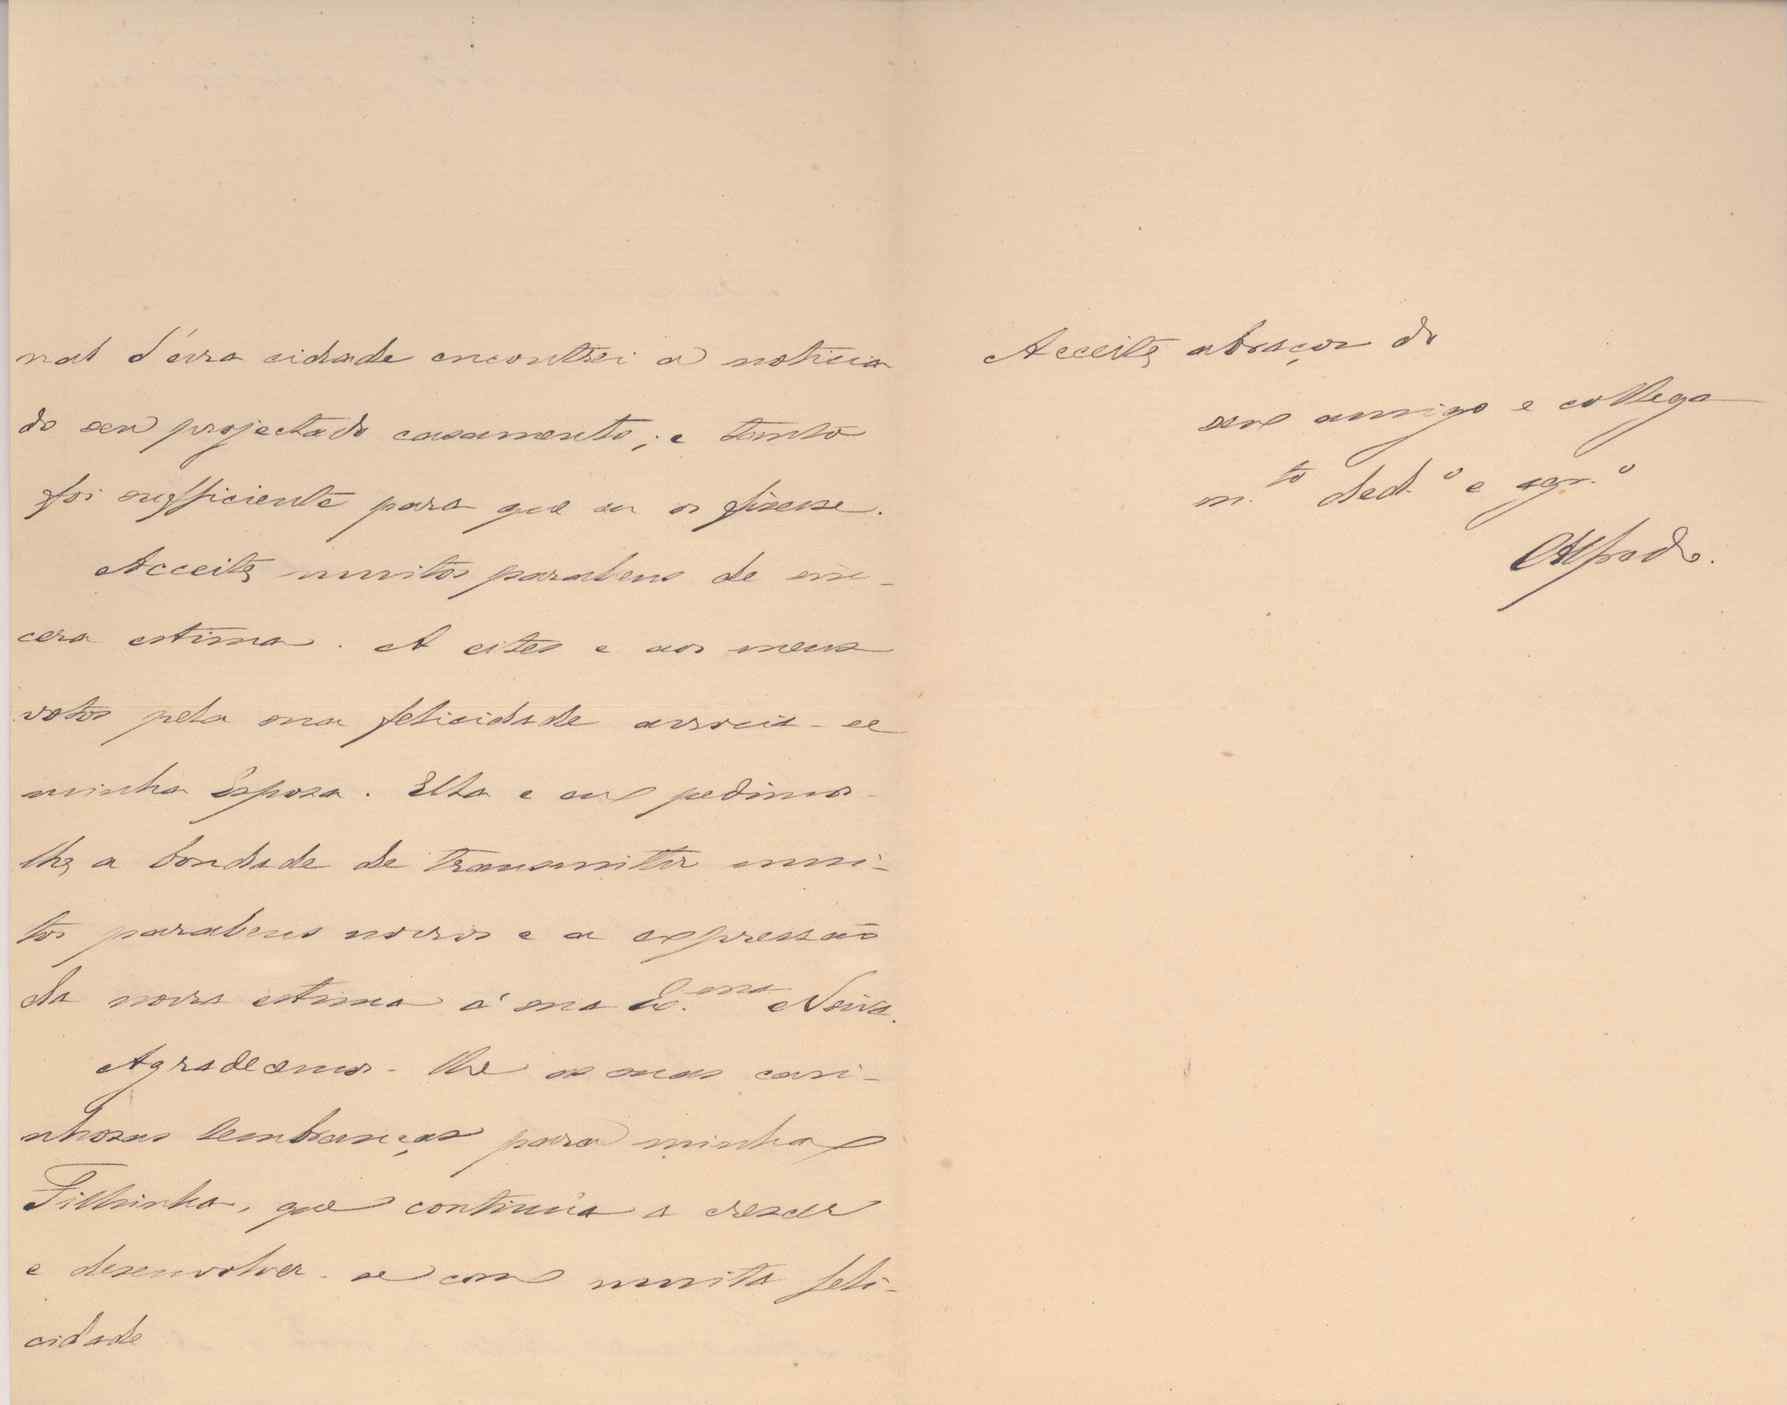 nal d'essa cidade encontrei a noticia
do seu projectado casamento; e tanto
foi sufficiente para que eu os fizesse.
Acceite muitos parabens de sin-
cera estima. A estes e aos meus
votos pela sua felicidade associa-se
minha Esposa. Ella e eu pedimos-
lhe a bondade de transmitir mui-
tos parabens nossos e a expressão
da nossa estima á sua Ex.ma Noiva.
Agradecemos-lhe as suas cari-
nhosas lembranças para minha
Filhinha, que continúa a crescer
e desenvolver-se com muita feli-
cidade
Acceite abraços do
seu amigo e collega
m.to ded.o e agr.o
Alfredo.